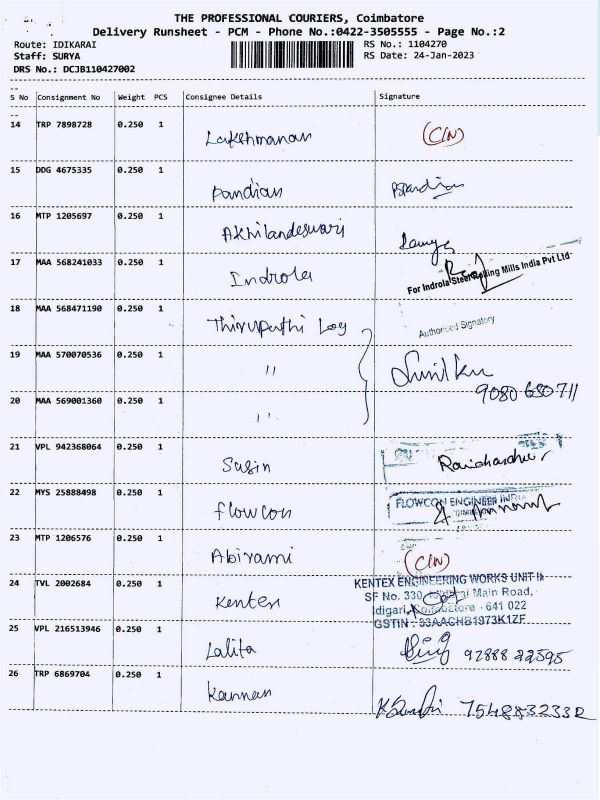 THE PROFESSIONAL COURIERS, Coimbatore
Delivery Runsheet - PCM - Phone No.:0422-3505555 - Page No.:2
Route: IDIKARAI
RS No.: 1104270
Staff: SURYA
RS Date: 24-Jan-2023
DRS No.: DCJB110427002
S No Consignment No Weight PCS Consignee Details Signature
14 TRP 7898728 0.250 1 Lakshmanan (CIN)
15 DDG 4675335 0.250 1 Pandian
16 MTP 1205697 0.250 1 Akhilandeswari
17 MAA 568241033 0.250 1 Indrola
For Indrola Steel Rolling Mills India Pvt Ltd
18 MAA 568471190 0.250 1 Thirupathi Log
Authorised Signatory
19 MAA 570070536 0.250 1 "
9080 680 711
20 MAA 569001360 0.250 1 "
21 VPL 942368064 0.250 1 Susin
22 MYS 25888498 0.250 1 flowcon
FLOWCON ENGINEER INDIA
23 MTP 1206576 0.250 1 Abirami (CIN)
24 TVL 2002684 0.250 1 Kenten
KENTEX ENGINEERING WORKS UNIT II
SF No. 330, Main Road,
Idigari, Coimbatore - 641 022
GSTIN : 33AACHB1973K1ZF
25 VPL 216513946 0.250 1 Lalita 92888 22595
26 TRP 6869704 0.250 1 Kannan